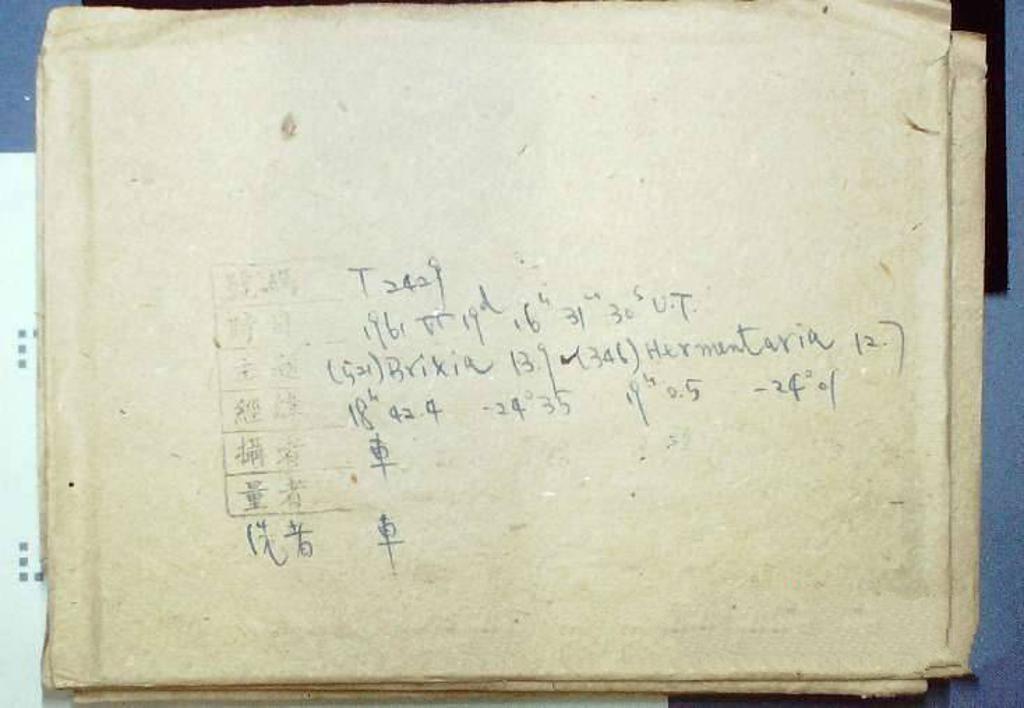 號碼 T2429
時日 1961 VI 19ᵈ 16ʰ 31ᵐ 30ˢ U.T.
(521) Brixia 13.9 (346) Hermentaria 12.7
經緯 18ʰ 42.4 -24°35 19ʰ 0.5 -24°01
攝者 車
量者
洗者 車